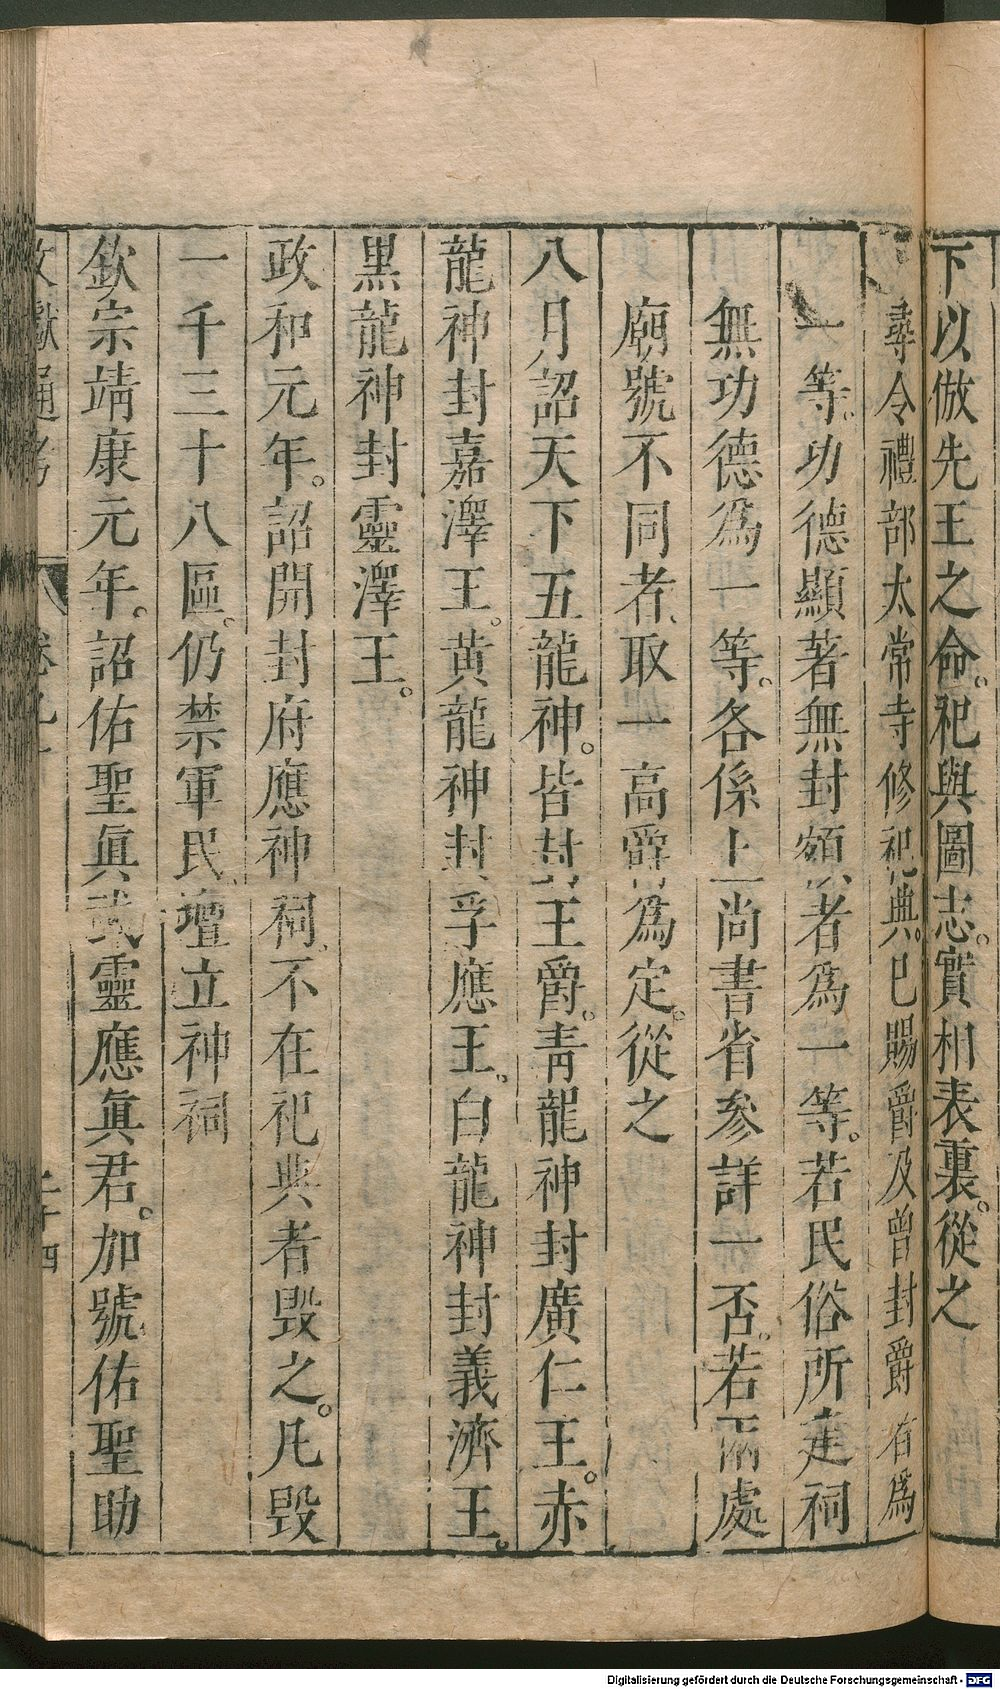 下以倣先王之命。祀與圖志。實相表裏。從之
尋令禮部太常寺修祀典。已賜爵及曾封爵有爲
一等。功德顯著無封額者爲一等。若民俗所建祠
無功德爲一等。各係上尚書省參詳一否。若兩處
廟號不同者、取一高爵爲定。從之
八月詔天下五龍神。皆封王爵。靑龍神封廣仁王。赤
龍神封嘉澤王。黃龍神封孚應王。白龍神封義濟王。
黑龍神封靈澤王。
政和元年。詔開封府應神祠、不在祀典者毀之。凡毀
一千三十八區、仍禁軍民、壇立神祠
欽宗靖康元年。詔佑聖眞武靈應眞君。加號佑聖助
文獻通考 卷九十 二十四
Digitalisierung gefördert durch die Deutsche Forschungsgemeinschaft - DFG